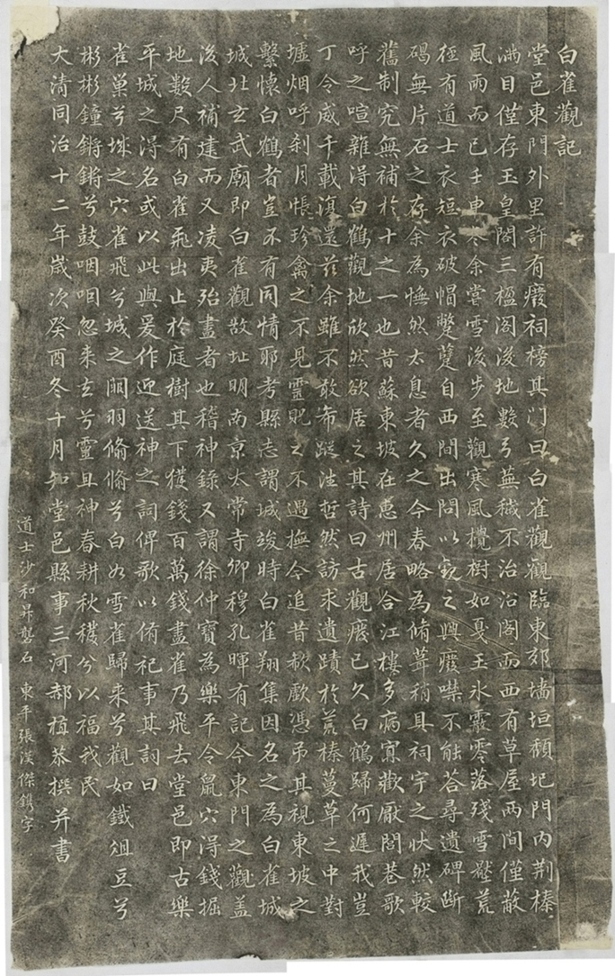 白雀觀記
堂邑東門外里許有癈祠榜其门曰白雀觀觀臨東郊墻垣頹圮門内荆榛
滿目僅存玉皇閣三楹閣後地數弓蕪穢不治沿閣而西有草屋两間僅蔽
風雨而已壬申冬余嘗雪後步至觀寒風欖樹如戛玉氷霰零落殘雪壓荒
徑有道士衣短衣破帽蹩躠自西間出問以觀之興癈噤不能荅尋遺碑斷
碣無片石之存余為憮然太息者久之今春略為脩葺稍具祠宇之状然較
舊制究無補於十之一也昔蘇東坡在惠州居合江樓多病寡歡厭閭巷歌
呼之喧雜得白鶴觀地欣然欲居之其詩曰古觀癈已久白鶴歸何遲我豈
丁令威千載復還兹余雖不敢希蹤往哲然訪求遺蹟於荒榛蔓草之中對
墟烟呼刹月悵珍禽之不見靈貺之不遇撫今追昔欷歔憑吊其視東坡之
繫懷白鶴者豈不有同情耶考縣志謂城竣時白雀翔集因名之為白雀城
城北玄武廟即白雀觀故址明南京太常寺卿穆孔暉有記今東門之觀盖
後人補建而又凌夷殆盡者也稽神錄又謂徐仲寳為樂平令鼠穴得錢掘
地數尺有白雀飛出止於庭樹其下獲錢百萬錢盡雀乃飛去堂邑即古樂
平城之得名或以此與爰作迎送神之詞俾歌以侑祀事其詞曰
雀巢兮城之穴雀飛兮城之闕羽翛翛兮白如雪雀歸来兮觀如鐵俎豆兮
彬彬鐘鏘鏘兮鼓咽咽忽来玄兮靈且神春耕秋穫兮以福我民
大清同治十二年嵗次癸酉冬十月知堂邑縣事三河郝植恭撰并書
道士沙和昇磐石 東平張漢傑鐫字